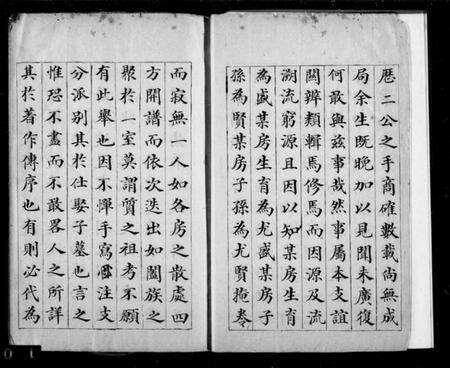 厯二公之手商確數載尚無成
局余生既晚加以見聞未廣復
何敢與茲事哉然事屬本支誼
關辨類輯焉修焉而因源及流
溯流窮源且因以知某房生育
為盛某房生育為尤盛某房子
孫為賢某房子孫為尤賢掩卷
而寂無一人如各房之散處四
方開譜而依次迭出如闔族之
聚於一室莫謂質之祖考不願
有此舉也因不憚手寫圖注支
分派別其於仕娶子墓也言之
惟恐不盡而不敢畧人之所詳
其於著作傳序也有則必代為
0 1